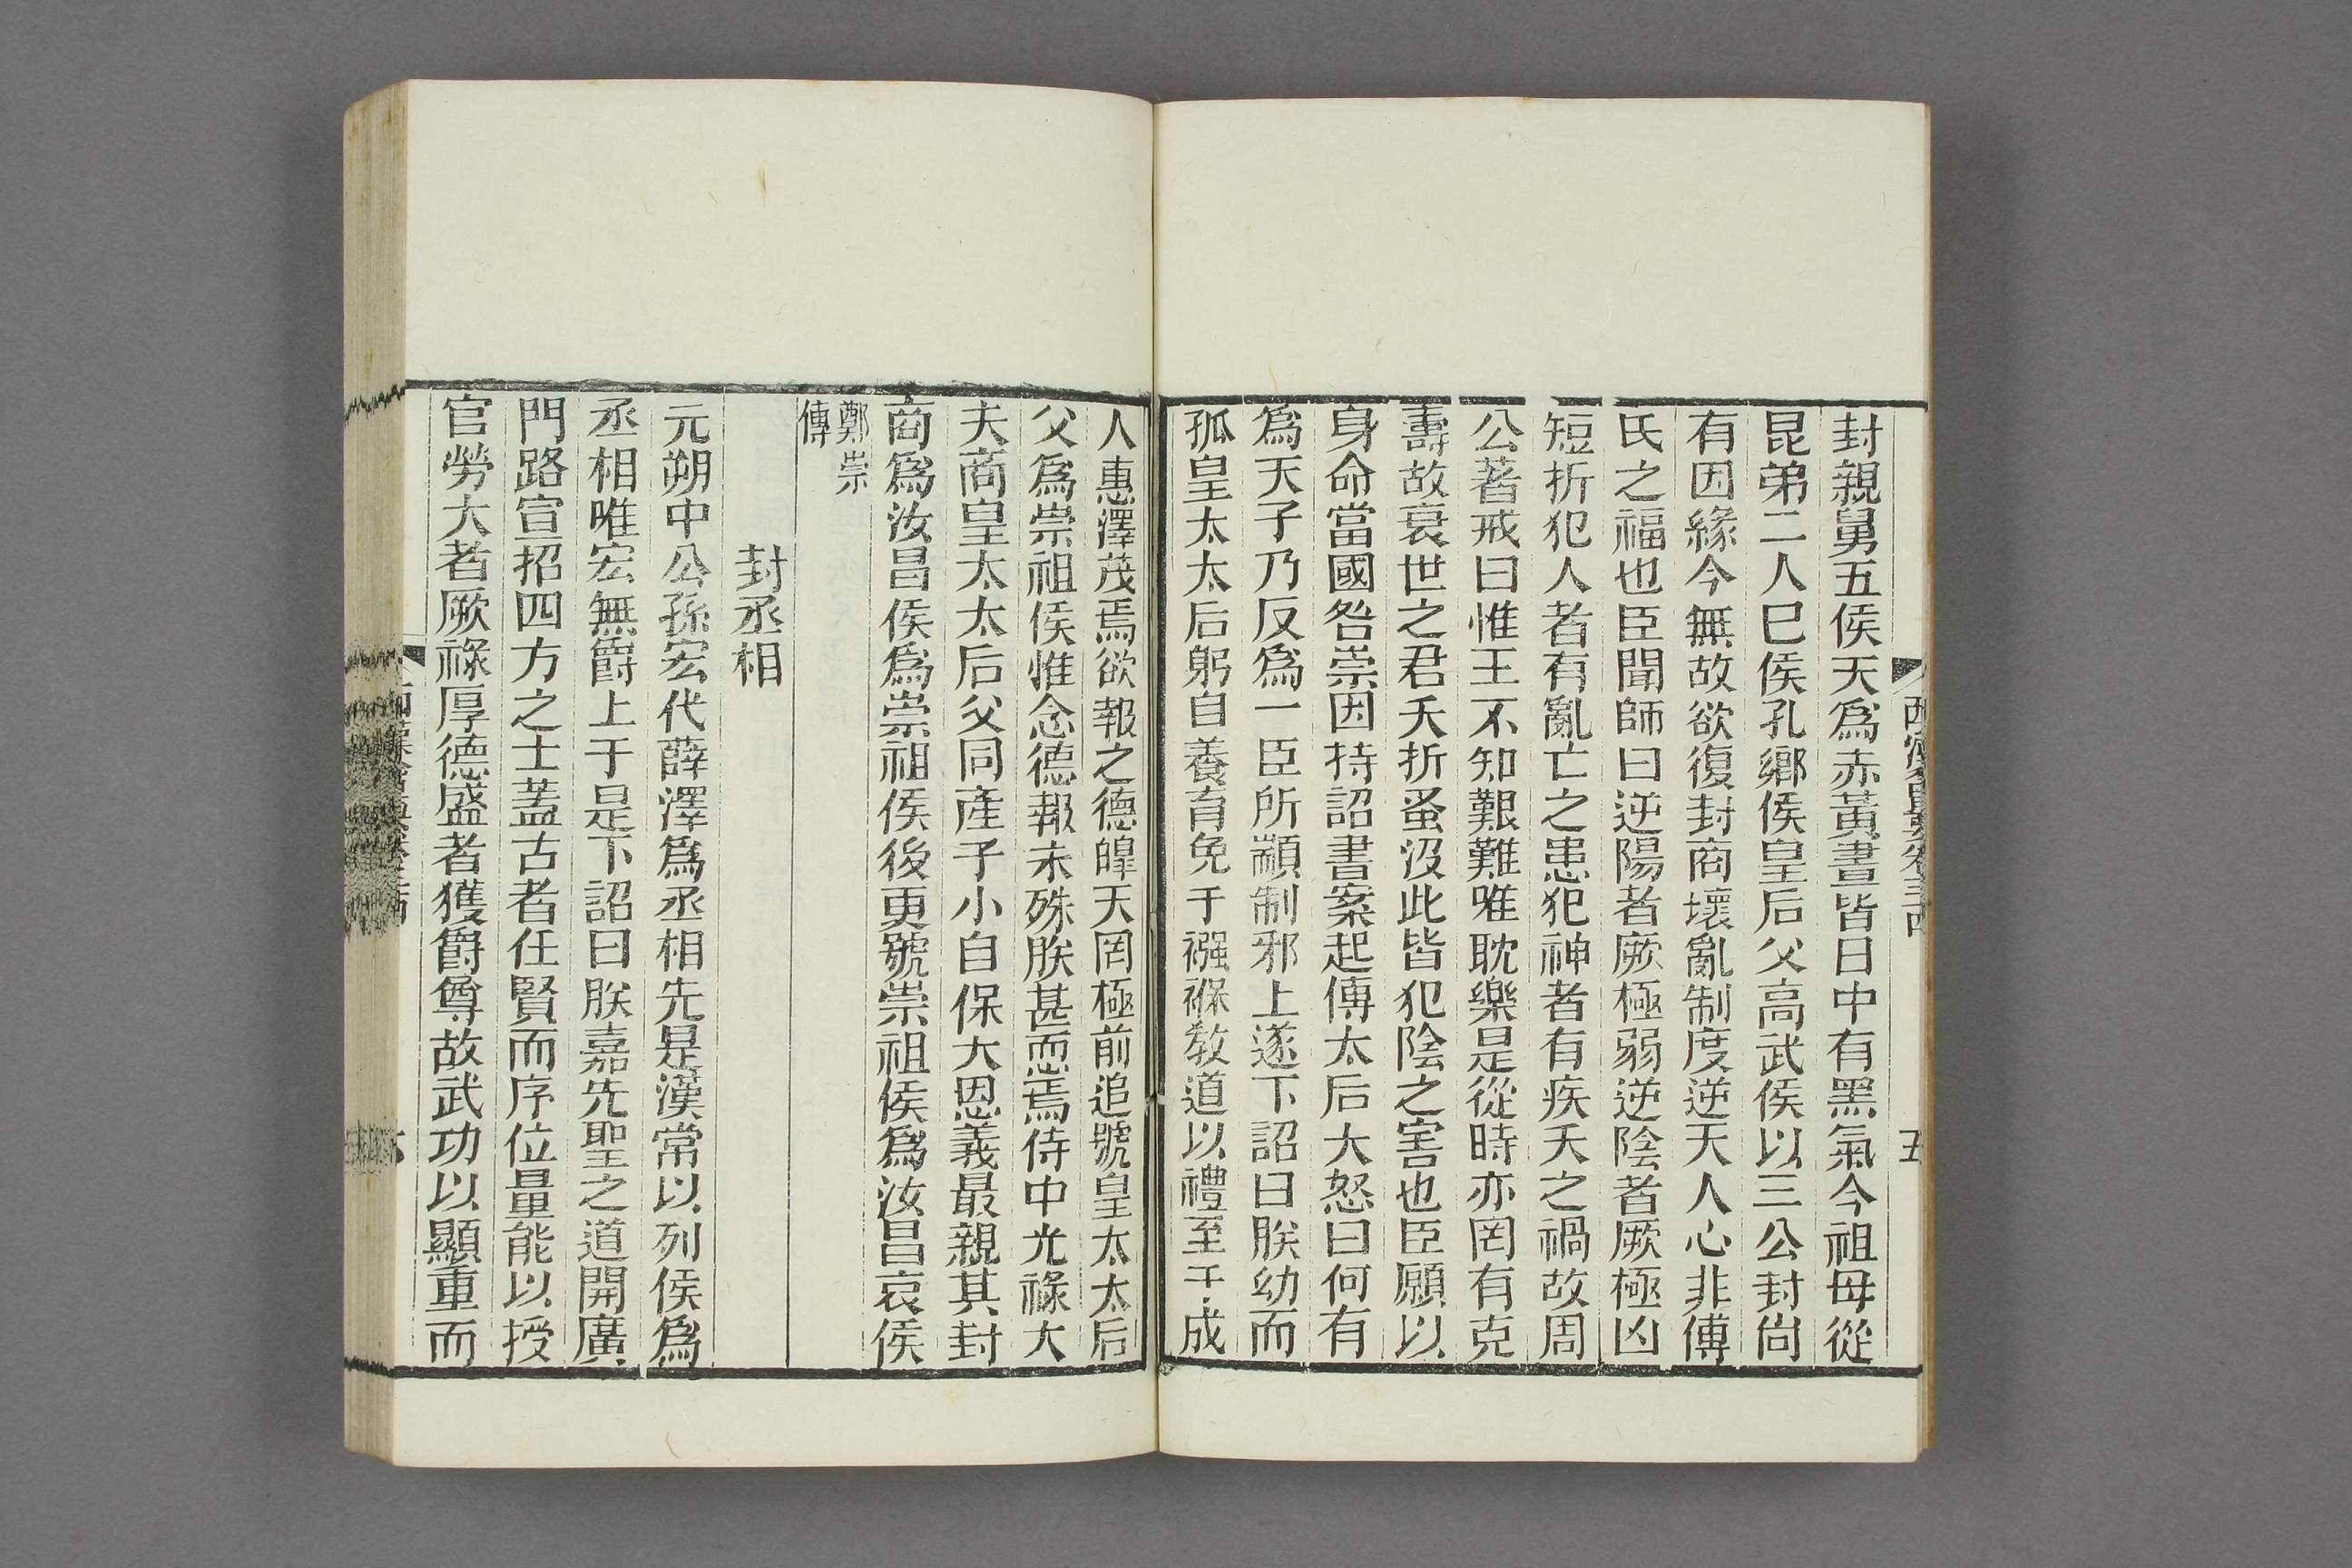 封親舅五侯天爲赤黃晝皆日中有黑氣今祖母從
昆弟二人巳侯孔鄉侯皇后父高武侯以三公封尙
有因緣今無故欲復封商壞亂制度逆天人心非傅
氏之福也臣聞師曰逆陽者厥極弱逆陰者厥極凶
短折犯人者有亂亡之患犯神者有疾夭之禍故周
公著戒曰惟王不知艱難唯耽樂是從時亦罔有克
壽故衰世之君夭折蚤沒此皆犯陰之害也臣願以
身命當國咎崇因持詔書案起傅太后大怒曰何有
爲天子乃反爲一臣所顓制邪上遂下詔曰朕幼而
孤皇太太后躬自養育免于襁褓敎道以禮至于成
人惠澤茂焉欲報之德皞天罔極前追號皇太太后
父爲崇祖侯惟念德報未殊朕甚恧焉侍中光祿大
夫商皇太太后父同產子小自保大恩義最親其封
商爲汝昌侯爲崇祖侯後更號崇祖侯爲汝昌哀侯
鄭崇
傳
封丞相
元朔中公孫宏代薛澤爲丞相先是漢常以列侯爲
丞相唯宏無爵上于是下詔曰朕嘉先聖之道開廣
門路宣招四方之士蓋古者任賢而序位量能以授
官勞大者厥祿厚德盛者獲爵尊故武功以顯重而